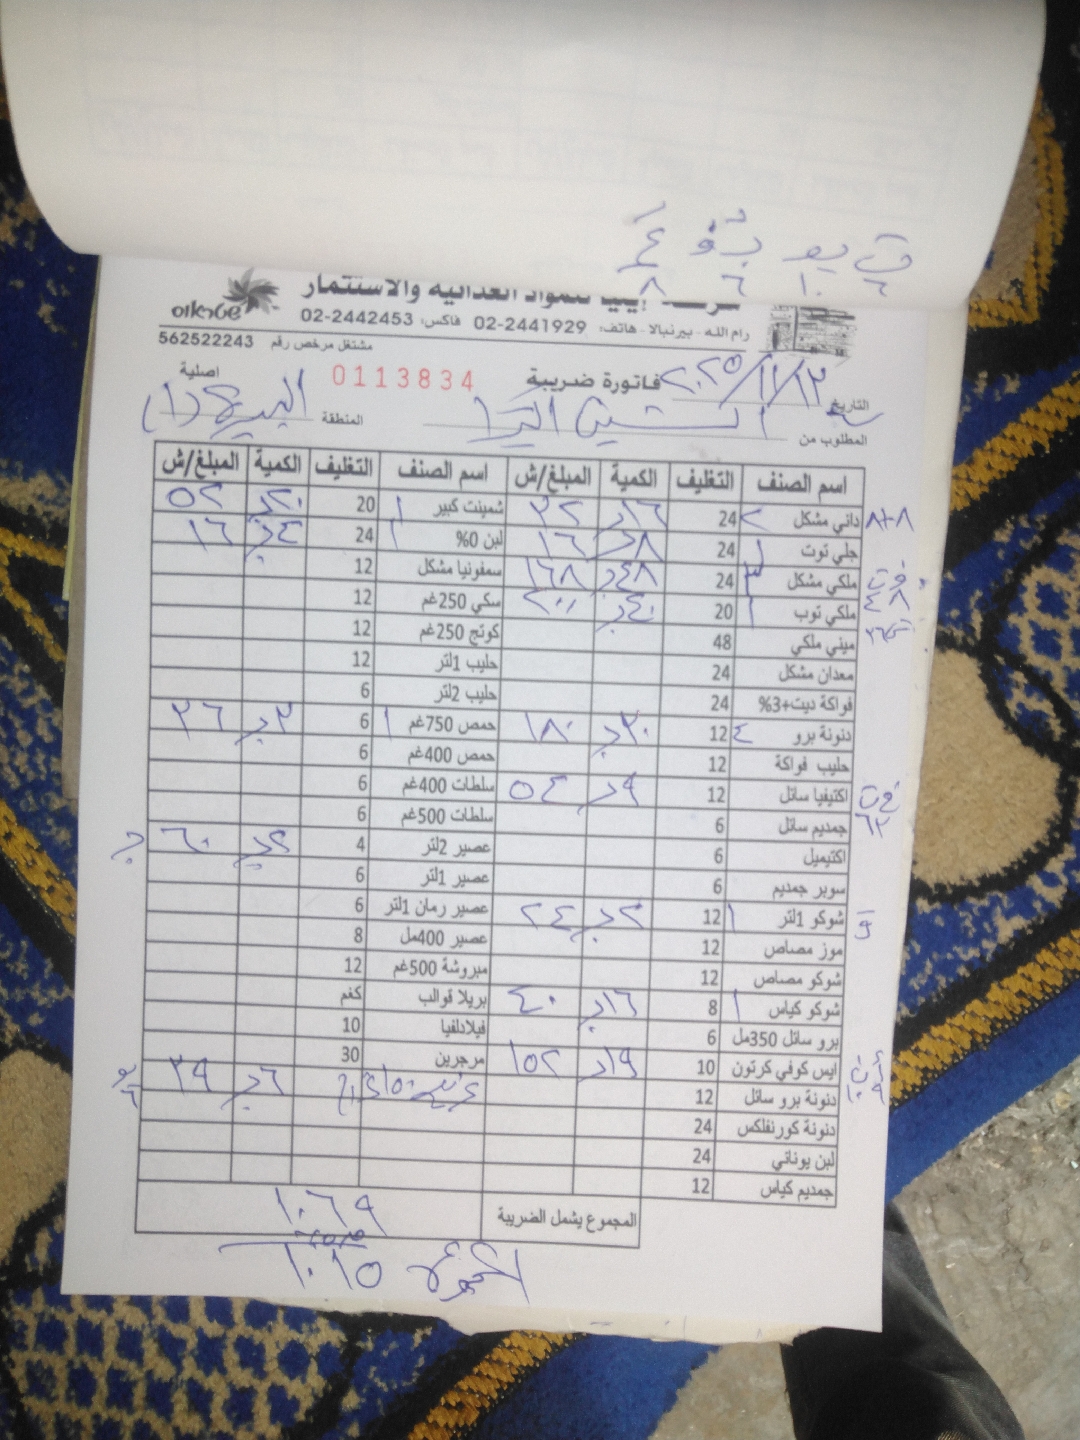 ت يو بو ٤
٦ ١٠ ٦ ٨
للمواد الغذائية والاستثمار
رام الله - بيرنبالا - هاتف: 02-2441929 فاكس: 02-2442453
مشتغل مرخص رقم 562522243
التاريخ ٢٠٢٥/١١/١٢ فاتورة ضريبة 0113834 اصلية
المطلوب من المنطقة البيرة (١)
اسم الصنف التغليف الكمية المبلغ/ش اسم الصنف التغليف الكمية المبلغ/ش
٨+٨ داني مشكل ٢ 24 ١٦ ٣٢ شمينت كبير ١ 20 ٢٠ ٥٢
جلي توت ١ 24 ٨ ١٦ لبن 0% ١ 24 ٤ ١٦
ملكي مشكل ٣ 24 ٤٨ ١٦٨ سمفونيا مشكل 12
٤٨ ملكي توب ١ 20 ٤٠ ٢٠٠ سكي 250غم 12
ميني ملكي 48 كوتج 250غم 12
معدان مشكل 24 حليب 1لتر 12
فواكة ديت+3% 24 حليب 2لتر 6
دنونة برو ٤ 12 ٣٠ ١٨٠ حمص 750غم ١ 6 ٣ ٣٦
حليب فواكة 12 حمص 400غم 6
اكتيفيا سائل 12 ٩ ٥٤ سلطات 400غم 6
٦٣ جمديم سائل 6 سلطات 500غم 6
اكتيميل 6 عصير 2لتر 4 ٢ ٦٠
سوبر جمديم 6 عصير 1لتر 6
شوكو 1لتر ١ 12 ٢ ٢٤ عصير رمان 1لتر 6
موز مصاص 12 عصير 400مل 8
شوكو مصاص 12 مبروشة 500غم 12
شوكو كياس ١ 8 ١٦ ٤٠ بريلا قوالب كغم
برو سائل 350مل 6 فيلادلفيا 10
ايس كوفي كرتون 10 ١٩ ١٥٢ مرجرين 30
دنونة برو سائل 12 ٦ ٣٩
دنونة كورنفلكس 24
لبن يوناني 24
جمديم كياس 12
المجموع يشمل الضريبة ١٠٦٩
المجموع ١٠١٥